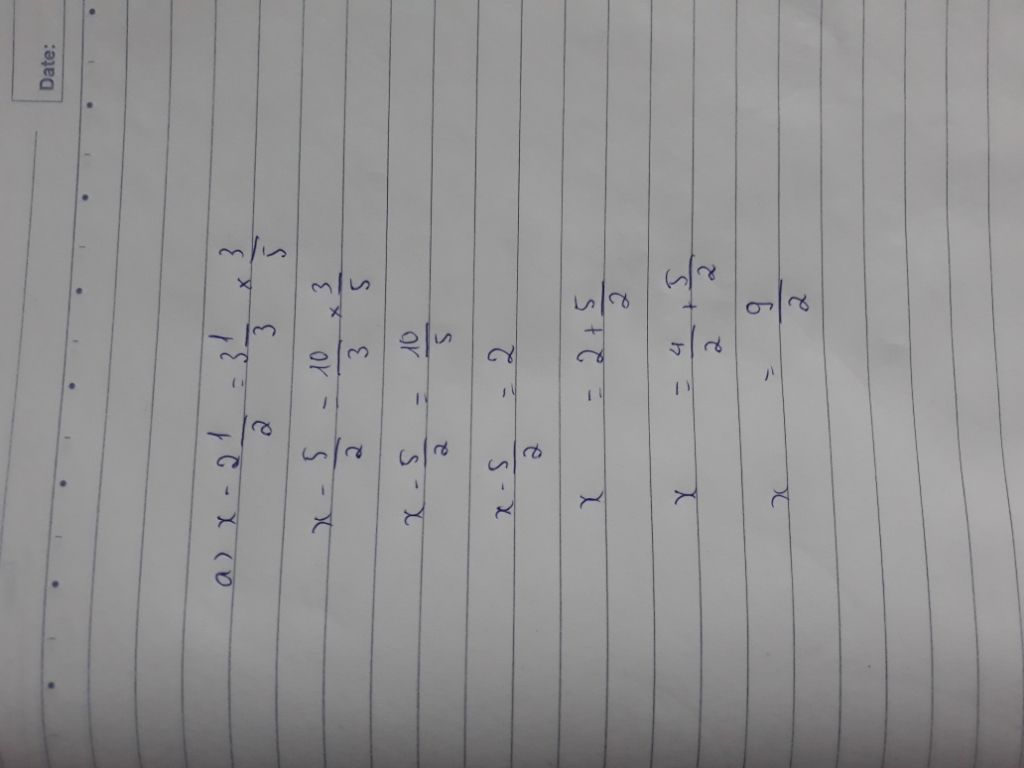 Date:
a) x - 2 1/2 = 3 1/3 × 3/5
x - 5/2 = 10/3 × 3/5
x - 5/2 = 10/5
x - 5/2 = 2
x = 2 + 5/2
x = 4/2 + 5/2
x = 9/2